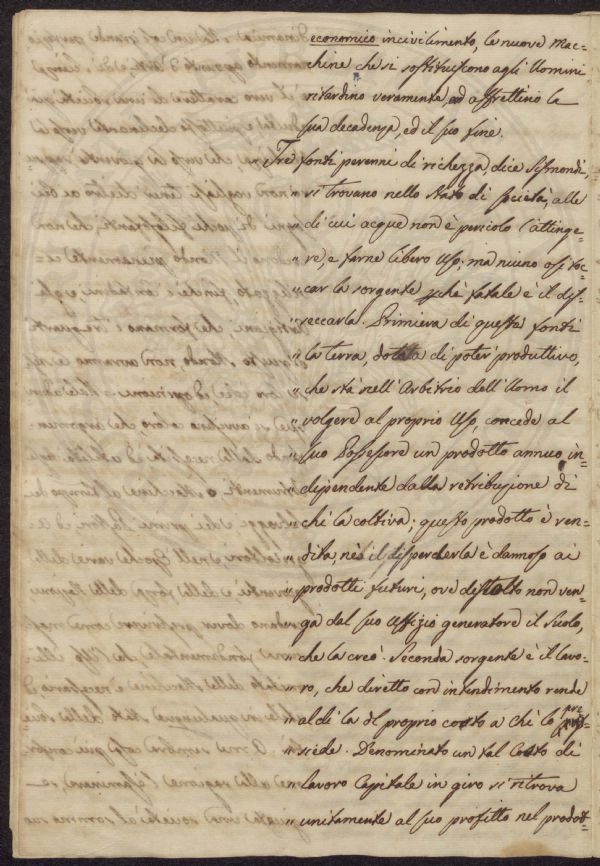 economico incivilimento, le nuove Mac=
chine che si sostituiscono agli Uomini
ritardino veramente, ad affrettino la
sua decadenza, ed il suo fine.
Tre fonti perenni di richezza, dice Sismondi,
" si trovano nello Stato di Società, alle
" di cui acque non è pericolo l'attinge=
" re, e farne libero Uso; ma niuno osi toc=
" car la sorgente pchè fatale è il dis=
" seccarla. Primiera di queste fonti
" la terra, dotata di poter produttivo,
" che stà nell'Arbitrio dell'Uomo il
" volgere al proprio Uso, concede al
" suo Possessore un prodotto annuo in=
" dipendente dalla retribuzione di
" chi la coltiva; questo prodotto è ren=
" dita, nè il disperderla è dannoso ai
" prodotti futuri, ove distolto non ven=
" ga dal suo Uffizio generatore il Suolo,
" che la creò. Seconda sorgente è il lavo=
" ro, che diretto con intendimento rende
" al di là del proprio costo a chi lo pos=
" siede. Denominato un tal Costo di
" lavoro Capitale in giro si ritrova
" unitamente al suo profitto nel prodot=